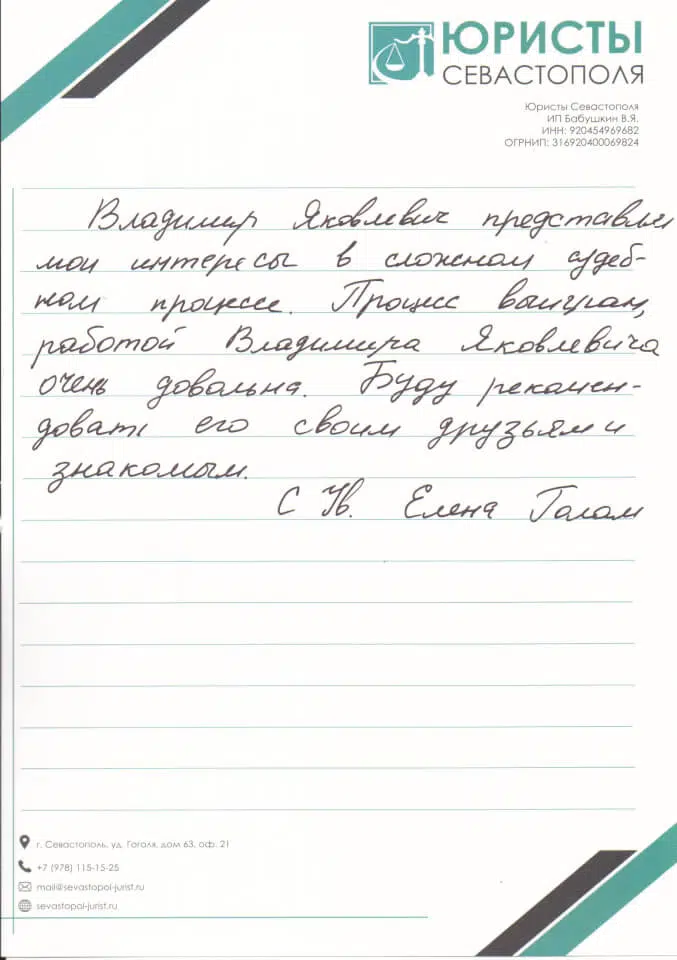 ЮРИСТЫ
СЕВАСТОПОЛЯ
Юристы Севастополя
ИП Бабушкин В.Я.
ИНН: 920454969682
ОГРНИП: 316920400069824
Владимир Яковлевич представлял
мои интересы в сложном судеб-
ном процессе. Процесс выигран,
работой Владимира Яковлевича
очень довольна. Буду рекомен-
довать его своим друзьям и
знакомым.
С Ув. Елена
г. Севастополь, уд. Гоголя, дом 63, оф. 21
+7 (978) 115-15-25
mail@sevastopol-jurist.ru
sevastopol-jurist.ru